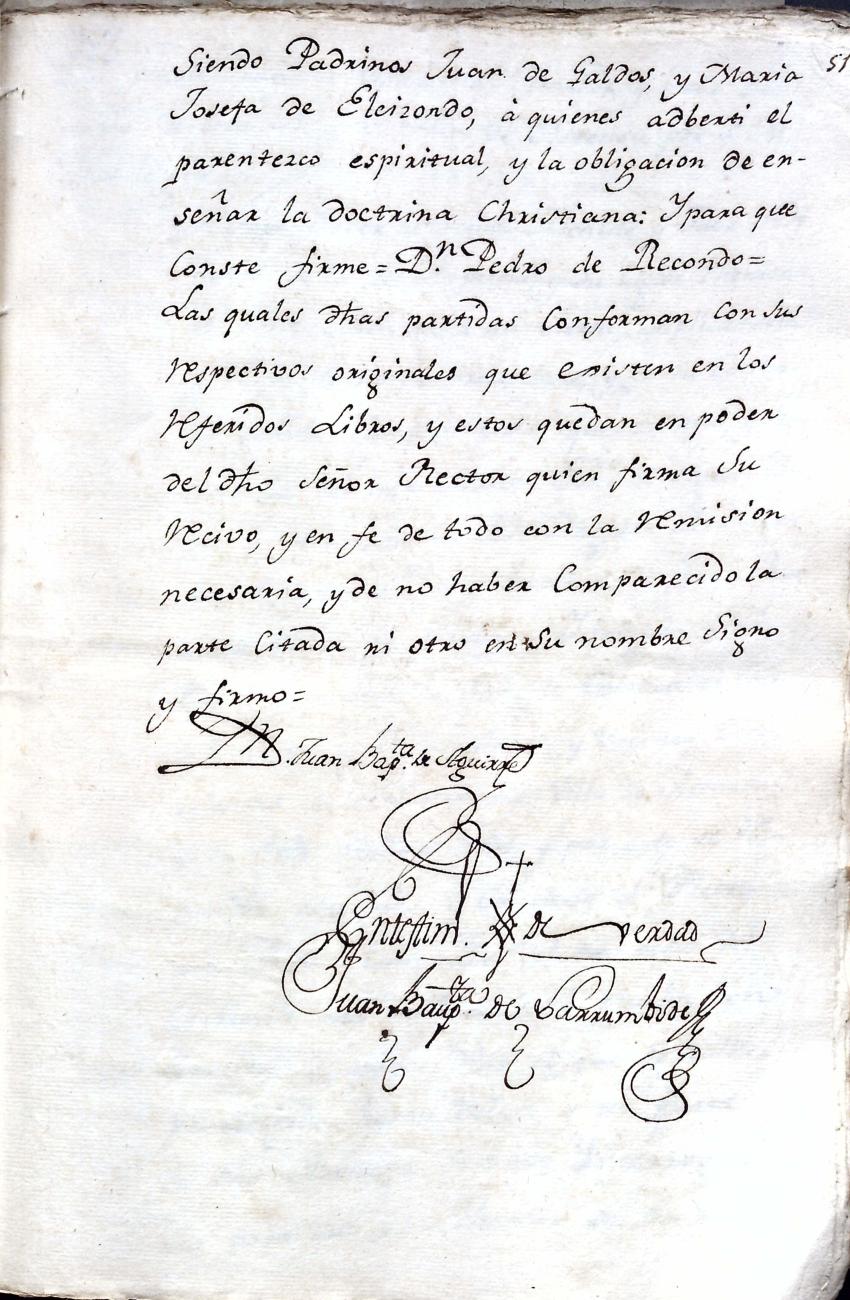 51
Siendo Padrinos Juan de Galdos, y Maria
Josefa de Eleizondo, à quienes adberti el
parentezco espiritual, y la obligacion de en-
señar la doctrina Christiana: Y para que
Conste firme = D.n Pedro de Recondo =
Las quales dhas partidas Conforman con sus
Respectivos originales que existen en los
Referidos Libros, y estos quedan en poder
del dho Señor Rector quien firma Su
Recivo, y en fe de todo con la Remision
necesaria, y de no haber Comparecido la
parte Citada ni otro en Su nombre Signo
y firmo =
Dn. Juan Bap.ta de Aguirre
En testim. de verdad
Juan Baup.ta de Larrumbide